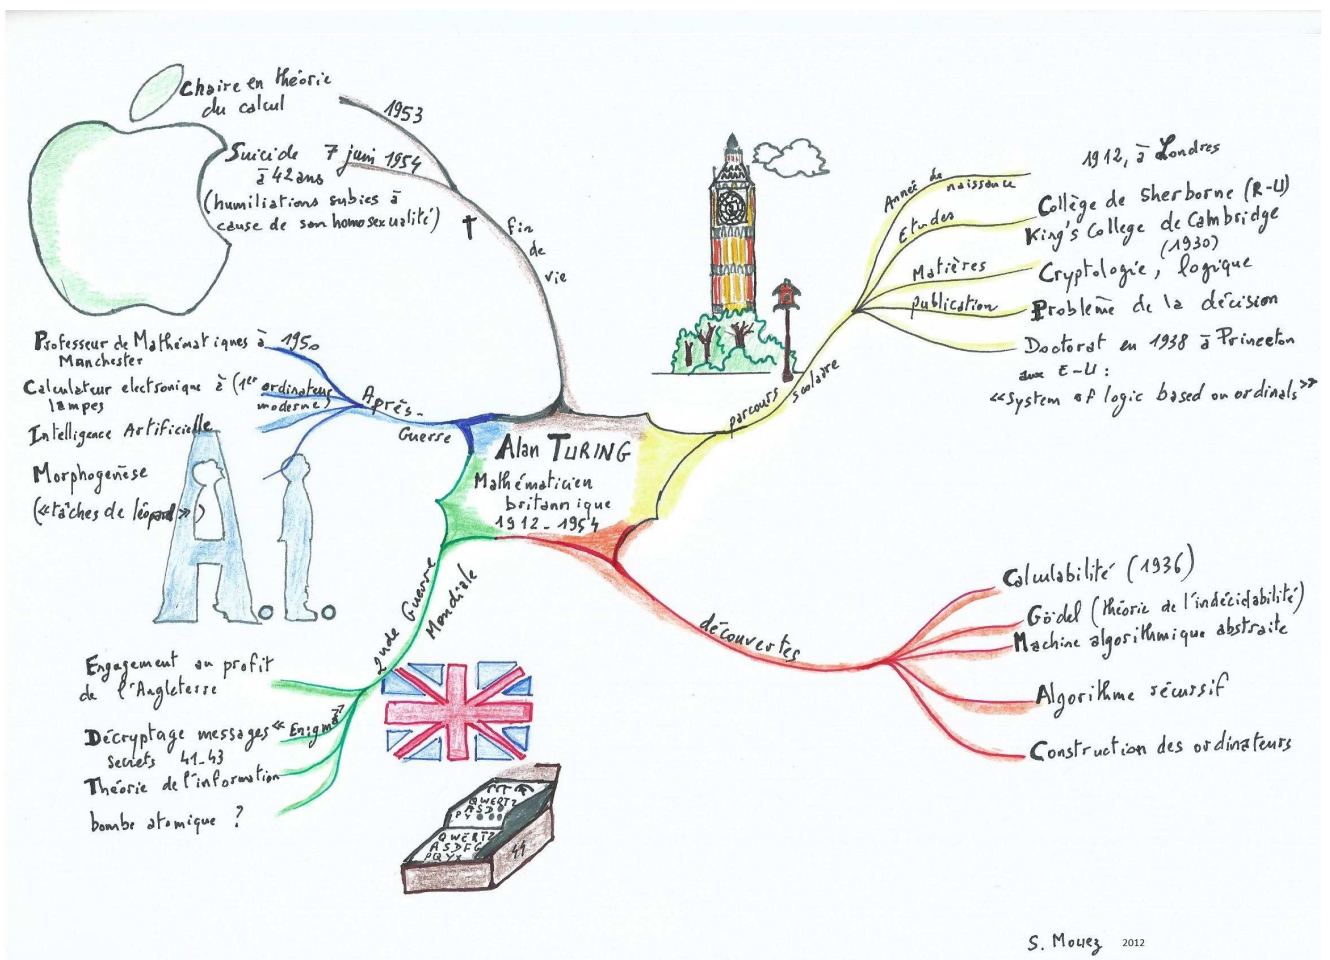 Alan TURING
Mathématicien
britannique
1912-1954
parcours scolaire
Année de naissance
1912, à Londres
Etudes
Collège de Sherborne (R-U)
King's College de Cambridge
(1930)
Matières
Cryptologie, logique
publication
Problème de la décision
Doctorat en 1938 à Princeton
aux E-U :
«System of logic based on ordinals»
découvertes
Calculabilité (1936)
Gödel (théorie de l'indécidabilité)
Machine algorithmique abstraite
Algorithme récursif
Construction des ordinateurs
2nde Guerre
Mondiale
Engagement au profit
de l'Angleterre
Décryptage messages «Enigma»
secrets 41-43
Théorie de l'information
bombe atomique ?
QWERTZ
ASD
PY
QWERTZ
ASDFG
PQYX
Après-
Guerre
Professeur de Mathématiques à 1950
Manchester
Calculateur electronique à (1er ordinateur
lampes moderne)
Intelligence Artificielle
Morphogenèse
(«tâches de léopard»)
A.I.
fin
de
vie
1953
Chaire en théorie
du calcul
Suicide 7 juin 1954
à 42 ans
(humiliations subies à
cause de son homosexualité)
S. Mouez 2012